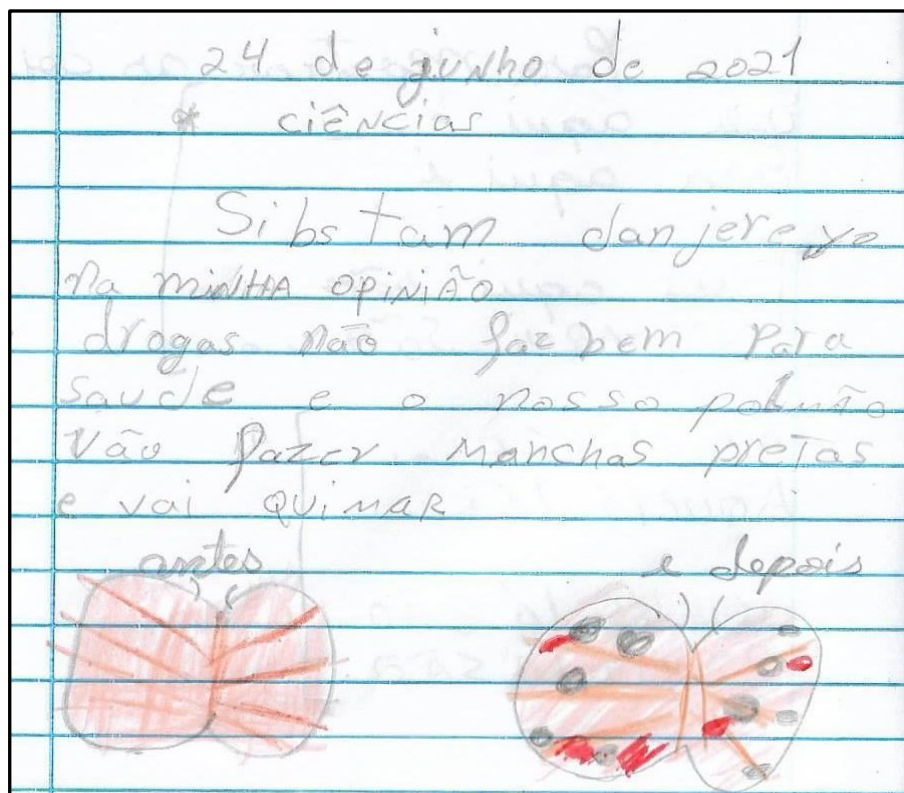 24 de junho de 2021
* ciências
Sibstam danjereyo
Na MINHA OPINIÃO
drogas não faz bem para
saude e o nosso pulmão
vão fazer manchas pretas
e vai QUIMAR
antes e depois